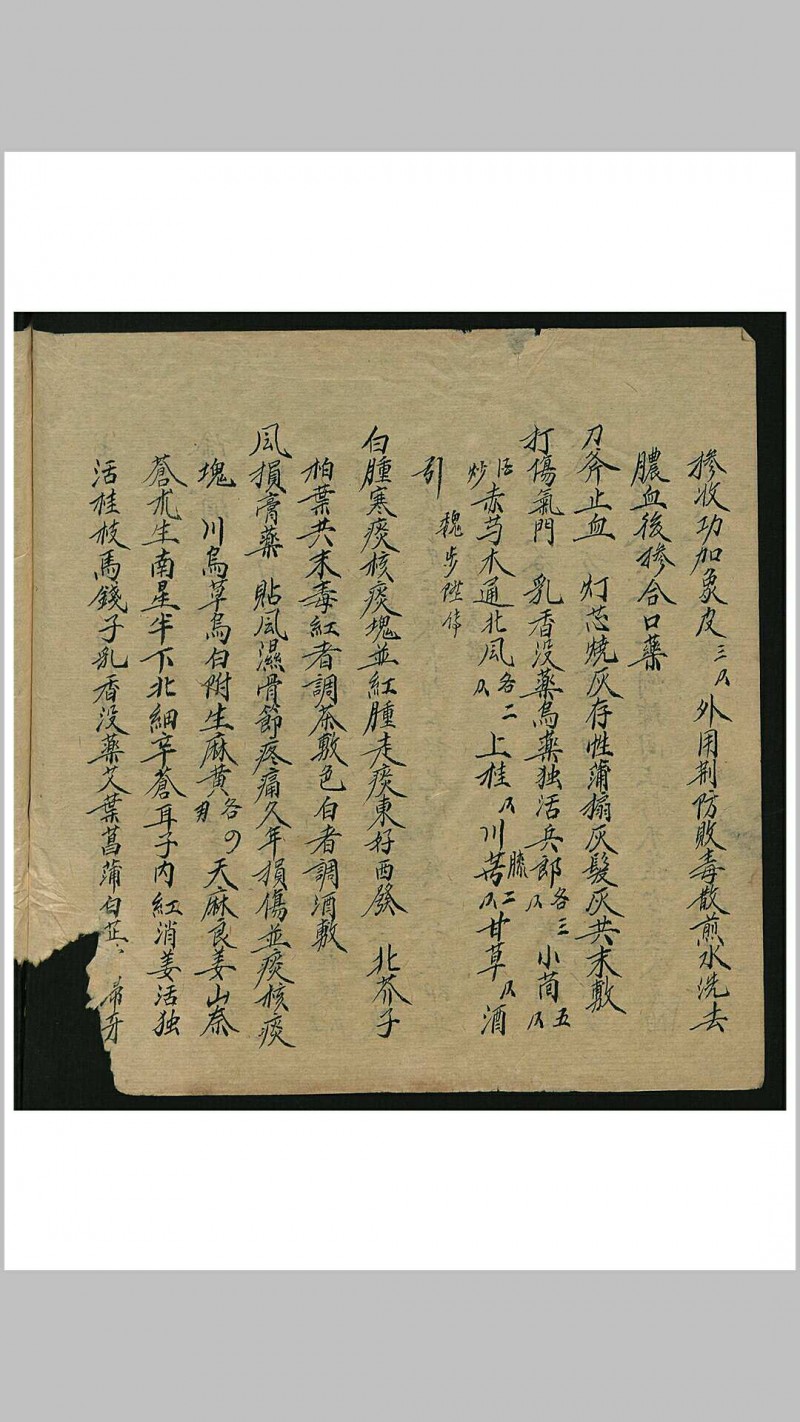 掺收功加象皮三 外用荆防败毒散煎水洗去
膿血後掺合口藥
刀斧止血 灯芯燒灰存性蒲搧灰髮灰共末敷
打傷氣門 乳香没藥烏藥独活兵郎各三 小茴五
炒赤芍木通北风各二 上桂 川芎膝二 甘草 酒
引
白腫寒痰核痰塊並紅腫走痰東好西發 北芥子
柏葉共末毒紅者調茶敷色白者調酒敷
风損膏藥 貼风濕骨節疼痛久年損傷並痰核痰
塊 川烏草烏白附生麻黄各 天麻良姜山奈
蒼朮生南星半下北細辛蒼耳子内紅消姜活独
活桂枝馬錢子乳香没藥艾葉菖蒲白芷 牙